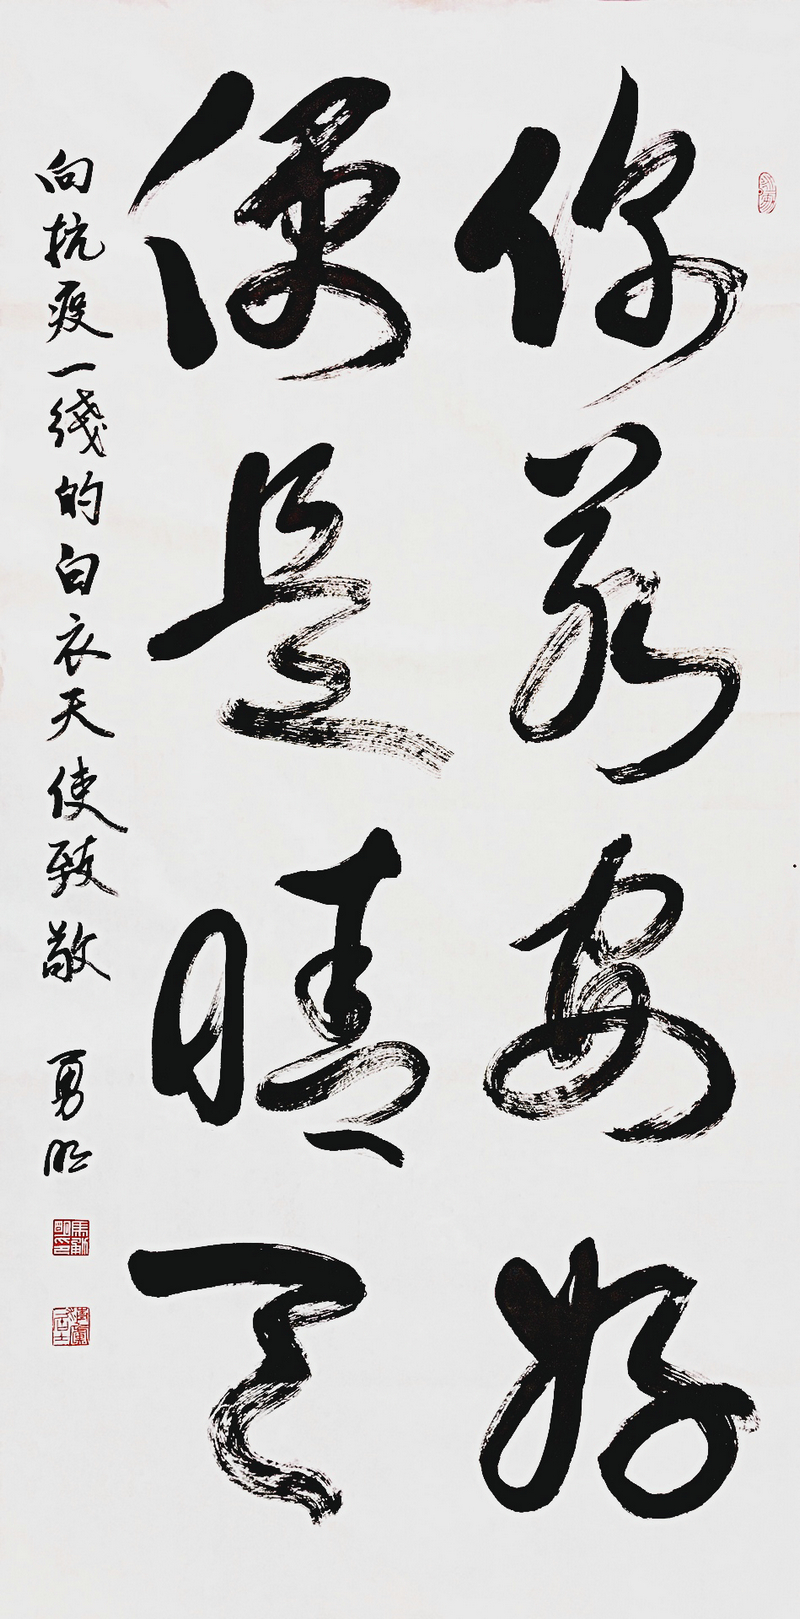 你若安好
便是晴天
向抗疫一线的白衣天使致敬 勇明